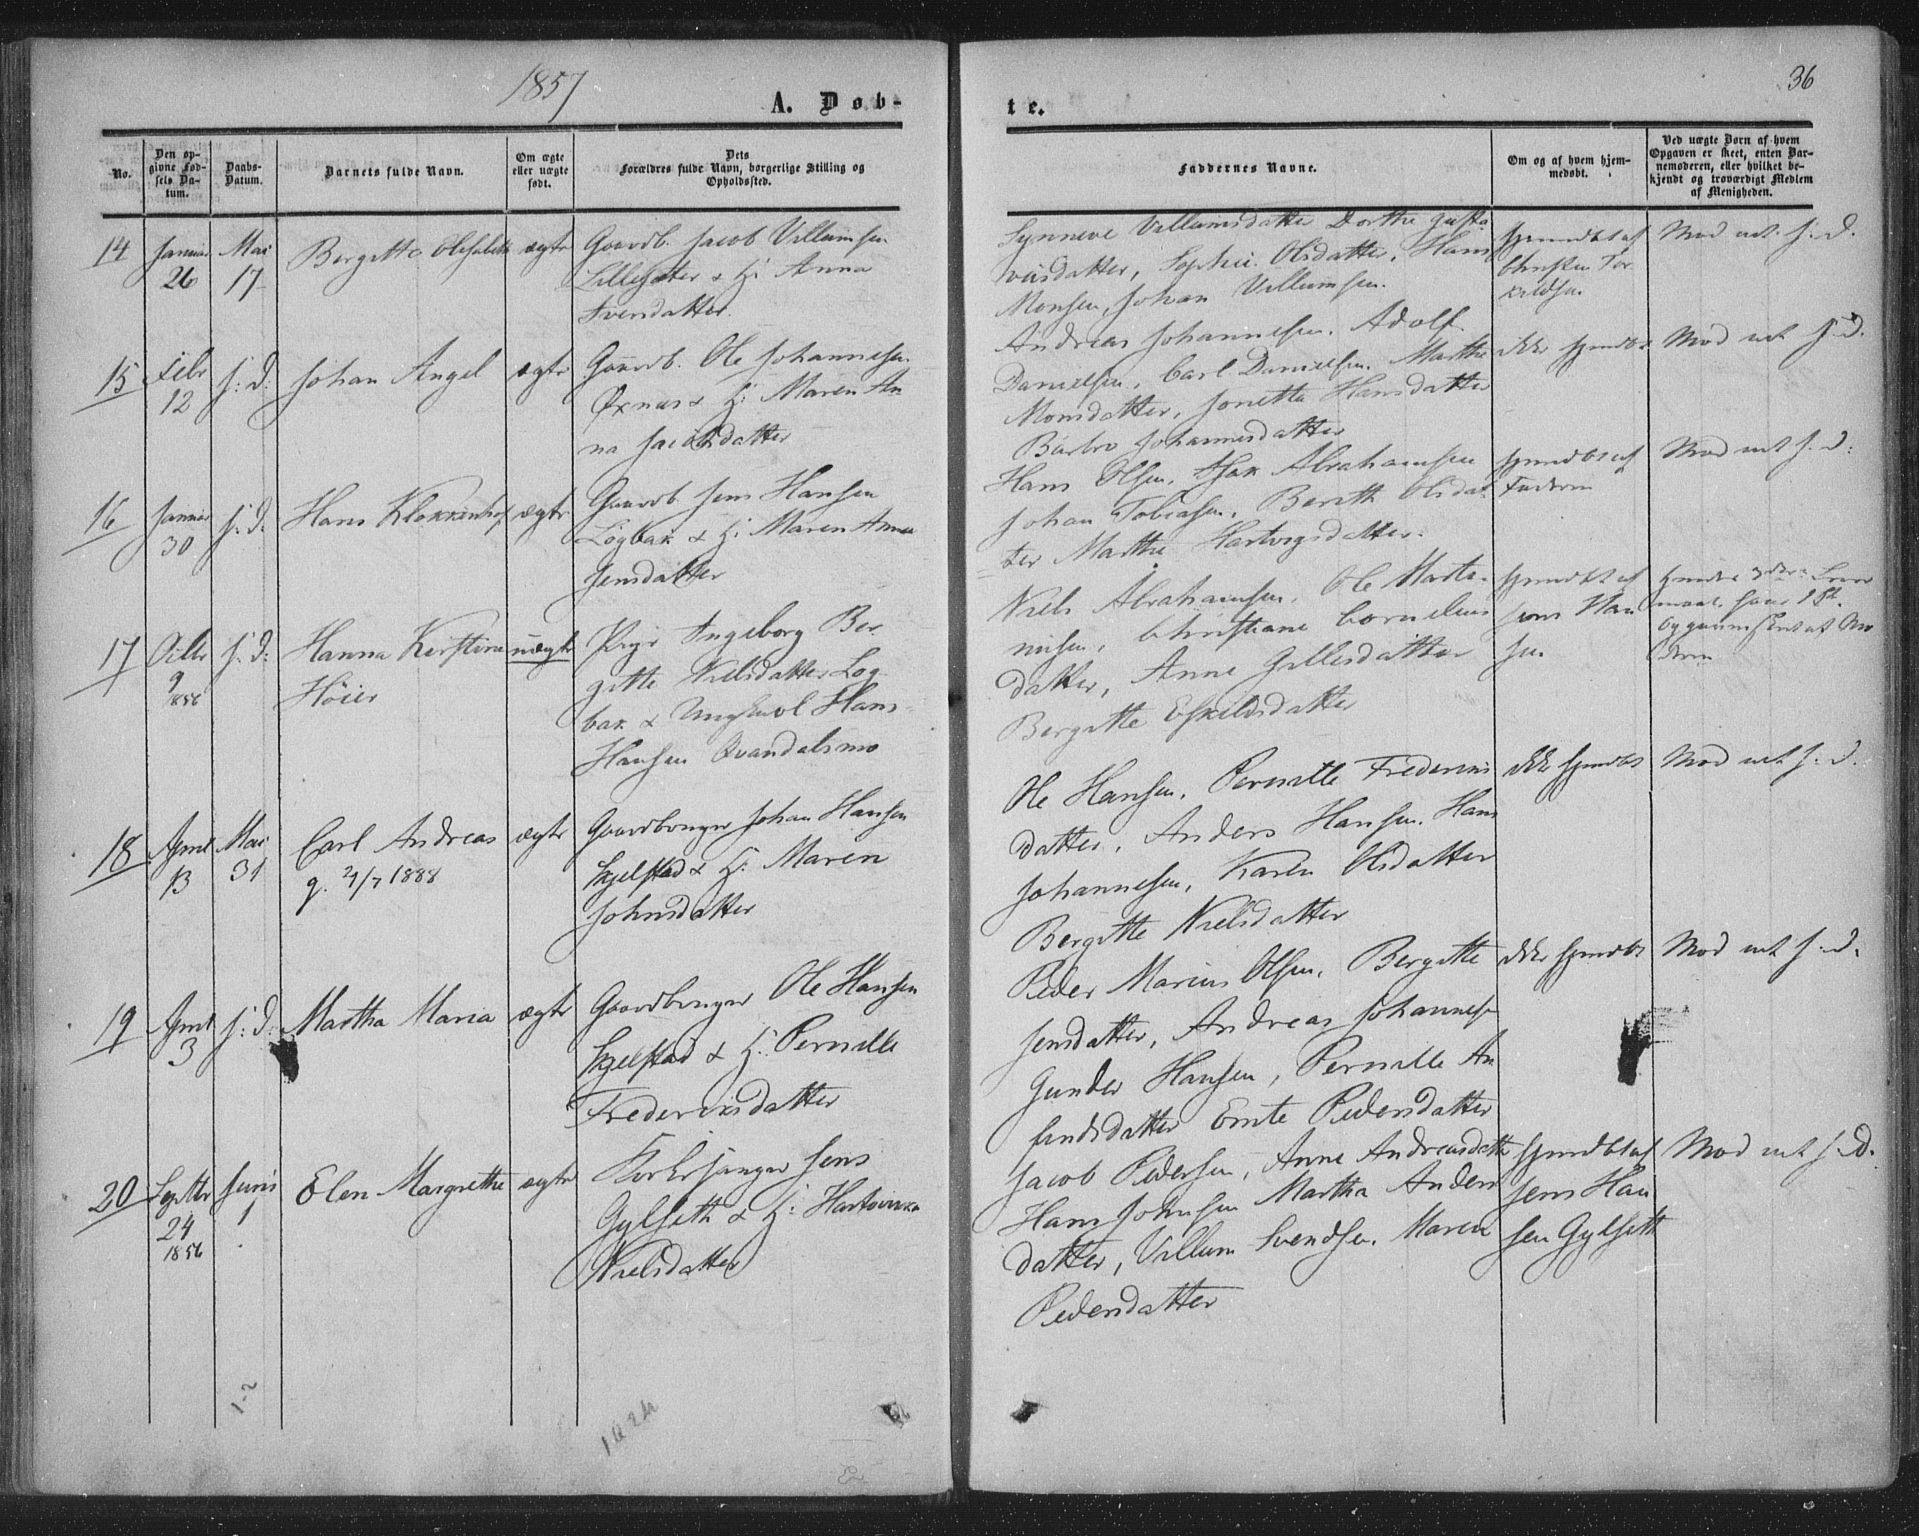 1857
A. Døb-
te.
36
No.
Den op-
givne Fød-
sels Da-
tum.
Daabs-
Datum.
Barnets fulde Navn.
Om ægte
eller uægte
født.
Dets
Forældres fulde Navn, borgerlige Stilling og
Opholdssted.
Faddernes Navne.
Om og af hvem hjem-
medøbt.
Ved uægte Børn af hvem
Opgaven er skeet, enten Bar-
nemoderen, eller hvilket be-
kjendt og troværdigt Medlem
af Menigheden.
14
Januar
26
Mai
17
Bergitte Elisabeth
ægte
Gaardb. Jacob Villumsen
Lillesæter & H: Anna
Svensdatter
Synneve Villumsdatter Dorthe Gusta
viusdatter, Sophie Olsdatter, Hans
Monsen, Johan Villumsen.
hjemdøbt af
Christen Tor
kildsen
Mod. vet. s. d.
15
Febr
12
s: d:
Johan Angel
ægte
Gaardb. Ole Johannesen
Øxnes & H: Maren An
na Jacobsdatter
Andreas Johannesen. Adolf
Danielsen, Carl Danielsen, Marthe
Monsdatter, Jonetta Hansdatter
Barbro Johannesdatter
ikke hjemdøbt
Mod vet s. d.
16
Januar
30
s: d:
Hans Klokkenhof
ægte
Gaardb Jens Hansen
Løgbak & H: Maren Anna
Jensdatter
Hans Olsen, Isak Abrahamsen
Johan Tobiasen, Bereth Olsdat
ter Marthe Hartvigsdatter.
hjemdøbt af
Faderen
Mod vet s. d:
17
Octbr
9
1856
s: d:
Hanna Kirstine
Höier
uægte
Pige Ingeborg Ber
gitte Nielsdatter Løg
bak & Ungkarl Hans
Hansen Qvandalsmo
Niels Abrahamsen, Ole Marti-
nusen, Christiane Cornelius
datter, Anne Gillesdatter
Bergitte Eskildsdatter
hjemdøbt af
Jens Han
sen
18
April
13
Mai
31
Carl Andreas
g. 21/7 1888
ægte
Gaardbruger Johan Hansen
Skjelstad & H: Maren
Johnsdatter
Ole Hansen, Pernille Frederiks
datter, Anders Hansen. Hans
Johannesen, Karen Olsdatter
Bergitte Nielsdatter
ikke hjemdøbt
Mod vet s. d.
19
April
3
s: d:
Martha Maria
ægte
Gaardbruger Ole Hansen
Skjelstad & H: Pernille
Frederiksdatter
Peder Marius Olsen, Bergitte
Jensdatter, Andreas Johannes
Gunder Hansen, Pernille An
findsdatter Pedersdatter
ikke hjemdøbt
Mod vet s. d.
20
Septbr
24
1856
Juni
1
Elen Margrethe
ægte
Kirkesanger Jens
Gylseth & H: Hartvikka
Nielsdatter
Jacob Pedersen, Anne Andreasdatter
Hans Johnsen Martha Anders
datter, Villum Svendsen, Maren
Pedersdatter
hjemdøbt af
Jens Han
sen Gylseth
Mod vet s. d.
1-2